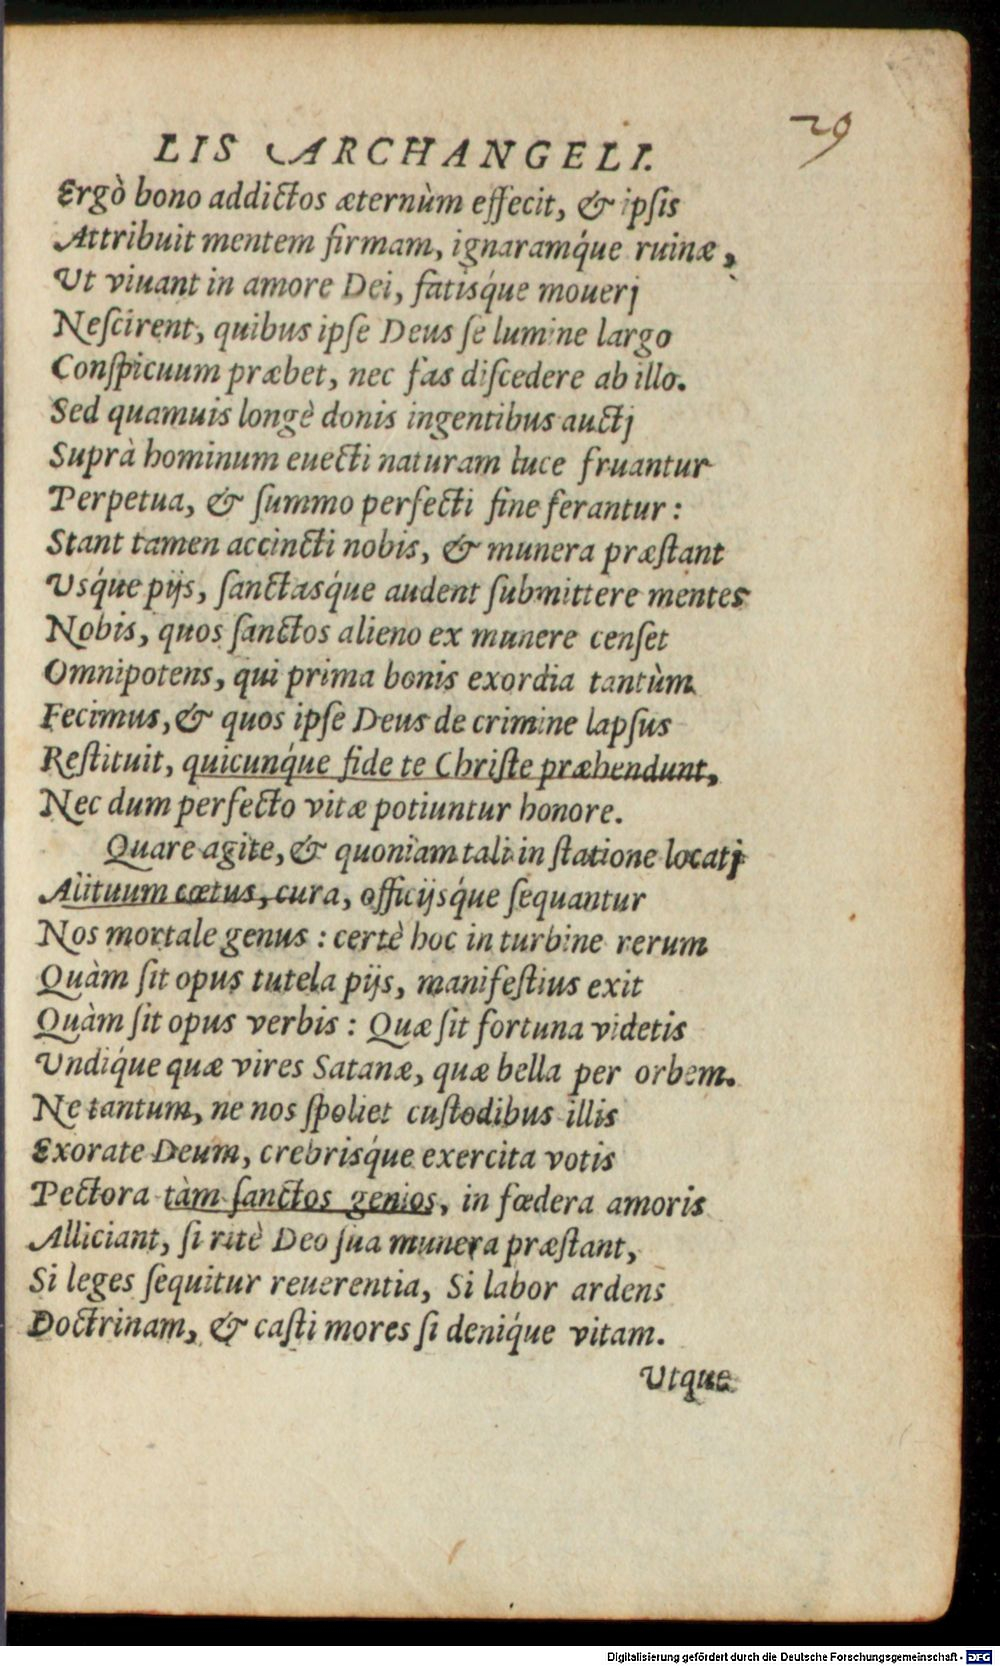 29
LIS ARCHANGELI.
Ergò bono addictos æternùm effecit, & ipſis
Attribuit mentem firmam, ignaramq́ue ruinæ,
Ut viuant in amore Dei, fatisq́ue mouerj
Neſcirent, quibus ipſe Deus ſe lumine largo
Conſpicuum præbet, nec fas diſcedere ab illo.
Sed quamuis longè donis ingentibus auctj
Suprà hominum euecti naturam luce fruantur
Perpetua, & ſummo perfecti fine ferantur:
Stant tamen accincti nobis, & munera præſtant
Usq́ue pijs, ſanctasq́ue audent ſubmittere mentes
Nobis, quos ſanctos alieno ex munere cenſet
Omnipotens, qui prima bonis exordia tantùm
Fecimus, & quos ipſe Deus de crimine lapſus
Reſtituit, quicunq́ue fide te Chriſte præhendunt,
Nec dum perfecto vitæ potiuntur honore.
Quare agite, & quoniam tali in ſtatione locatj
Aiituum cœtus, cura, officijsq́ue ſequantur
Nos mortale genus: certè hoc in turbine rerum
Quàm ſit opus tutela pijs, manifeſtius exit
Quàm ſit opus verbis: Quæ ſit fortuna videtis
Undiq́ue quæ vires Satanæ, quæ bella per orbem.
Ne tantum, ne nos ſpoliet cuſtodibus illis
Exorate Deum, crebrisq́ue exercita votis
Pectora tàm ſanctos genios, in fœdera amoris
Alliciant, ſi ritè Deo ſua munera præſtant,
Si leges ſequitur reuerentia, Si labor ardens
Doctrinam, & caſti mores ſi deniq́ue vitam.
Utque
Digitalisierung gefördert durch die Deutsche Forschungsgemeinschaft - DFG